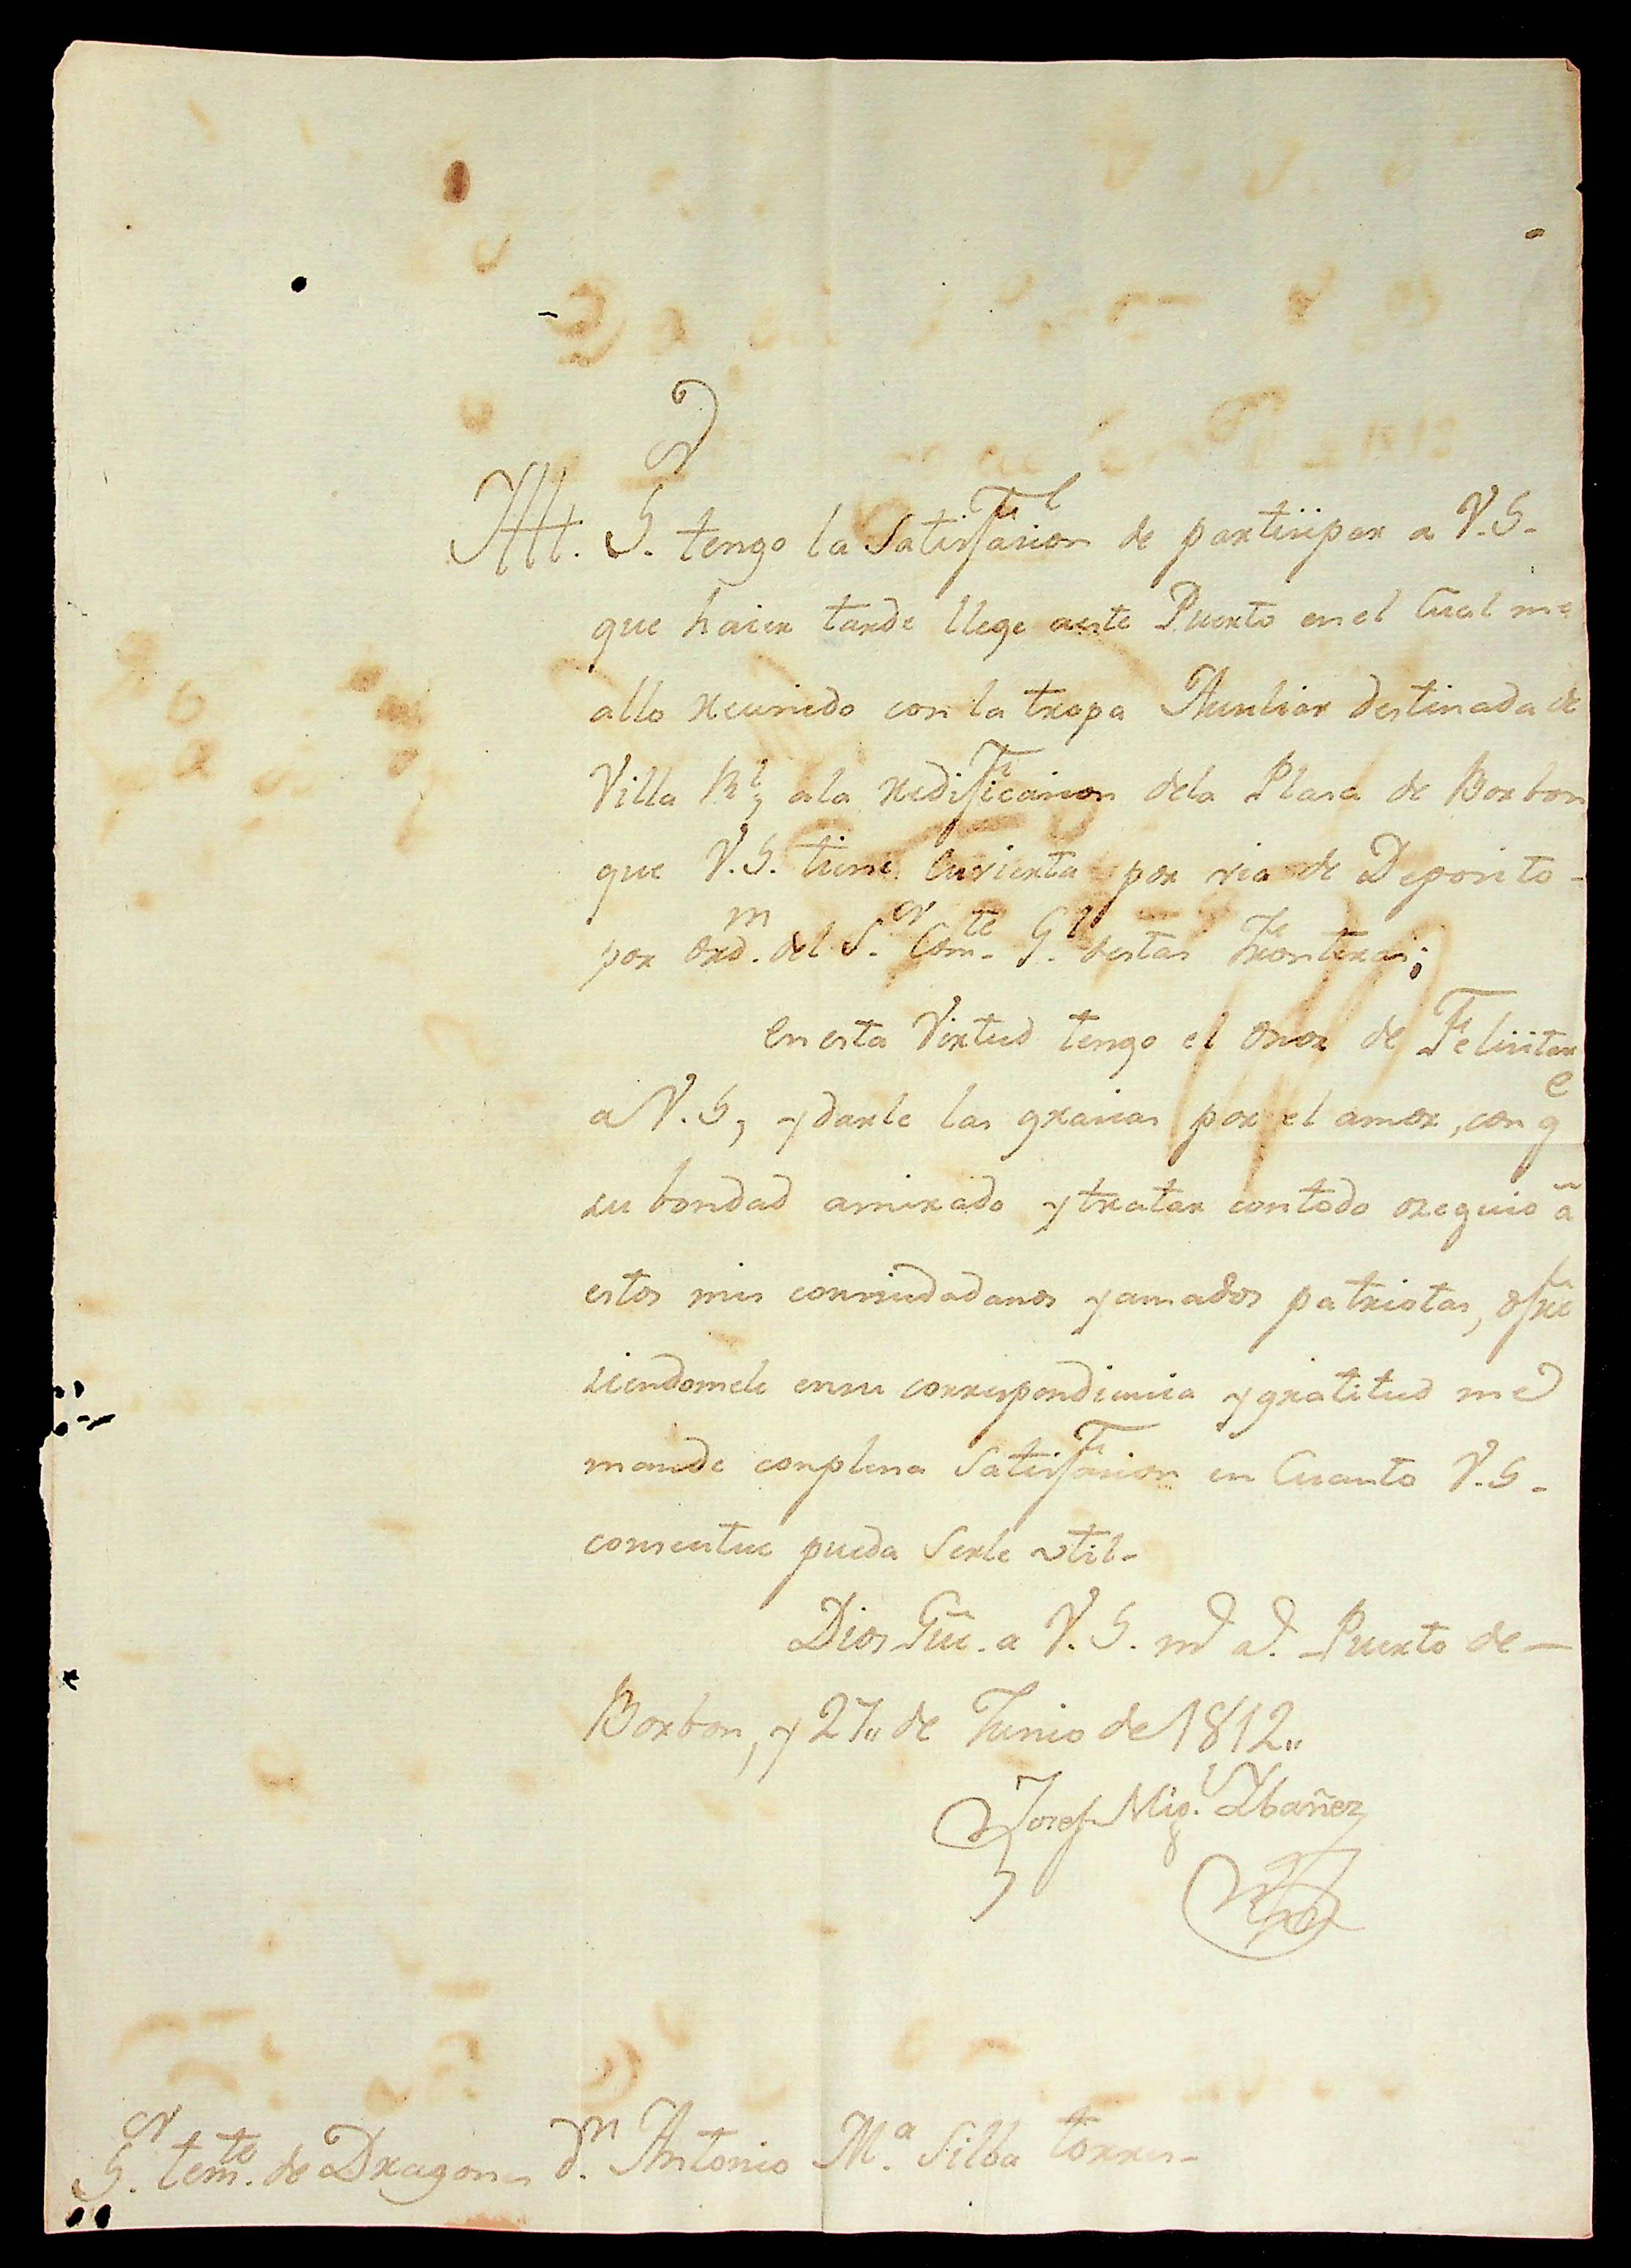 M. S.or tengo la Satisfacion de partisipar a V.S-
que haier tarde llege aeste Puerto en el Cual me
allo reunido con la tropa Auxliar destinada de
Villa Rl, ala redificacion dela Plasa de Borbon
que V.S. tiene Cuvierta por via de Deposito-
por ordn. del Sor. Comte. Gl. destas Fronteras;
En esta Virtud tengo el onor de Felisitar
a V.S, y darle las gracias por el amor, con qe
su bondad amirado y tratar con todo osequio ã
estos mis consiudadanos y amados patriotas, ofre
siendomele ensu correspondiencia y gratitud me
mande conplena Satisfacion en Cuanto V.S-
consentue pueda Serle util-
Dios Gũe. a V.S. ms as. Puerto de-
Borbon, y 27,, de Junio de 1812,,
Josef Migl. Ybañez
Sor. tente. de Dragones dn. Antonio Ma. Silba torres-